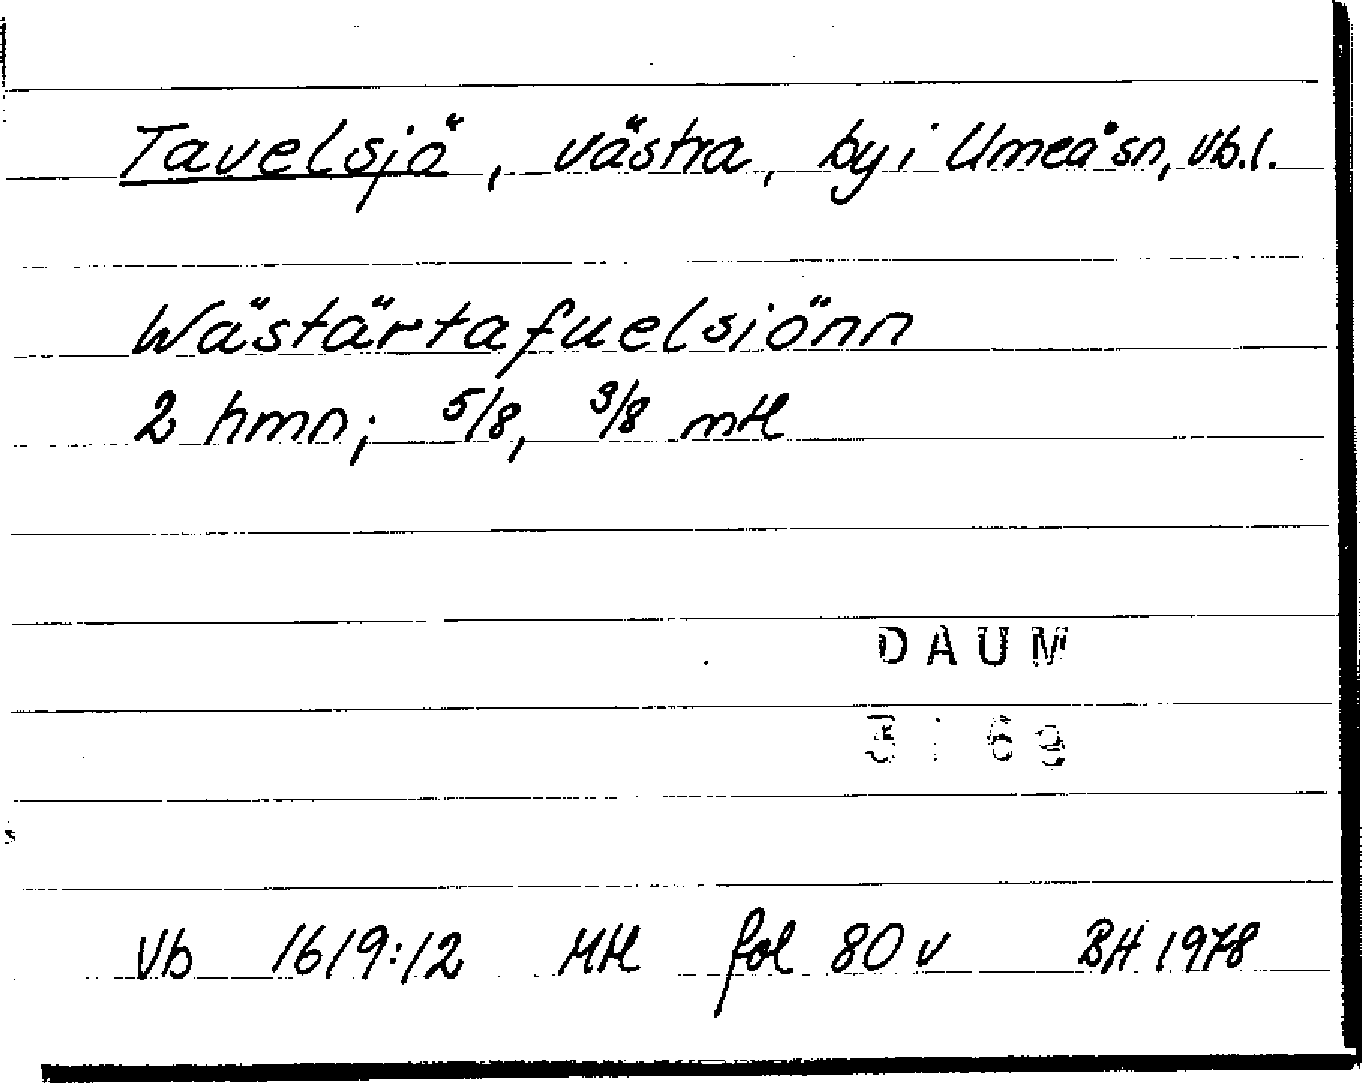 Tavelsjö, västra, by i Umeå sn, Vb.l.
Wästärtafuelsiönn
2 hmn; 5/8, 3/8 mtl
DAUM
3 : 69
Vb 1619:12 Mtl fol 80 v BH 1978